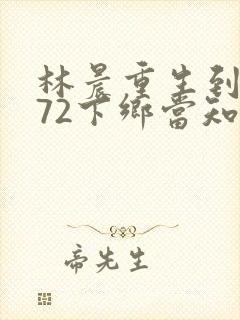 林晨重生到
72下鄉當知
帝先生